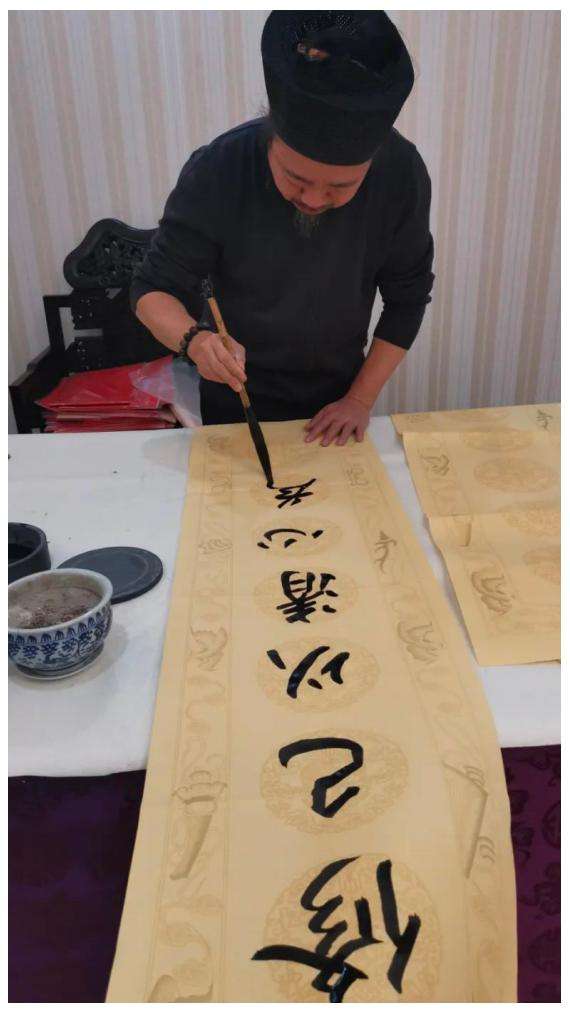 修己以清心